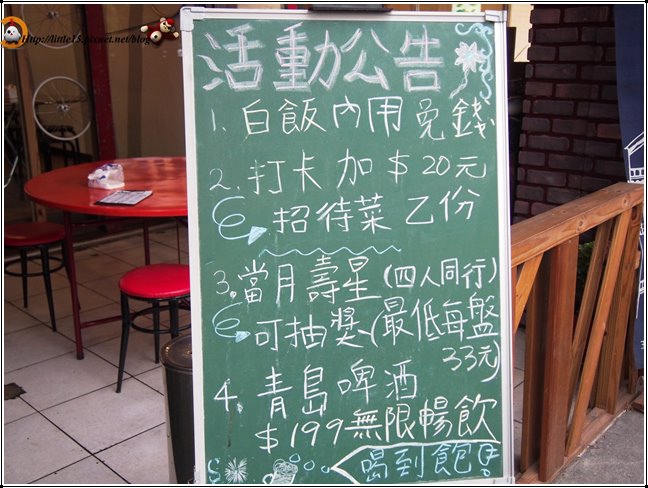 Http://little15.pixnet.net/blog
活動公告
1. 白飯內用免錢
2. 打卡加 $20元
招待菜乙份
3. 當月壽星(四人同行)
可抽獎(最低每盤
33元)
4. 青島啤酒
$199無限暢飲
喝到飽